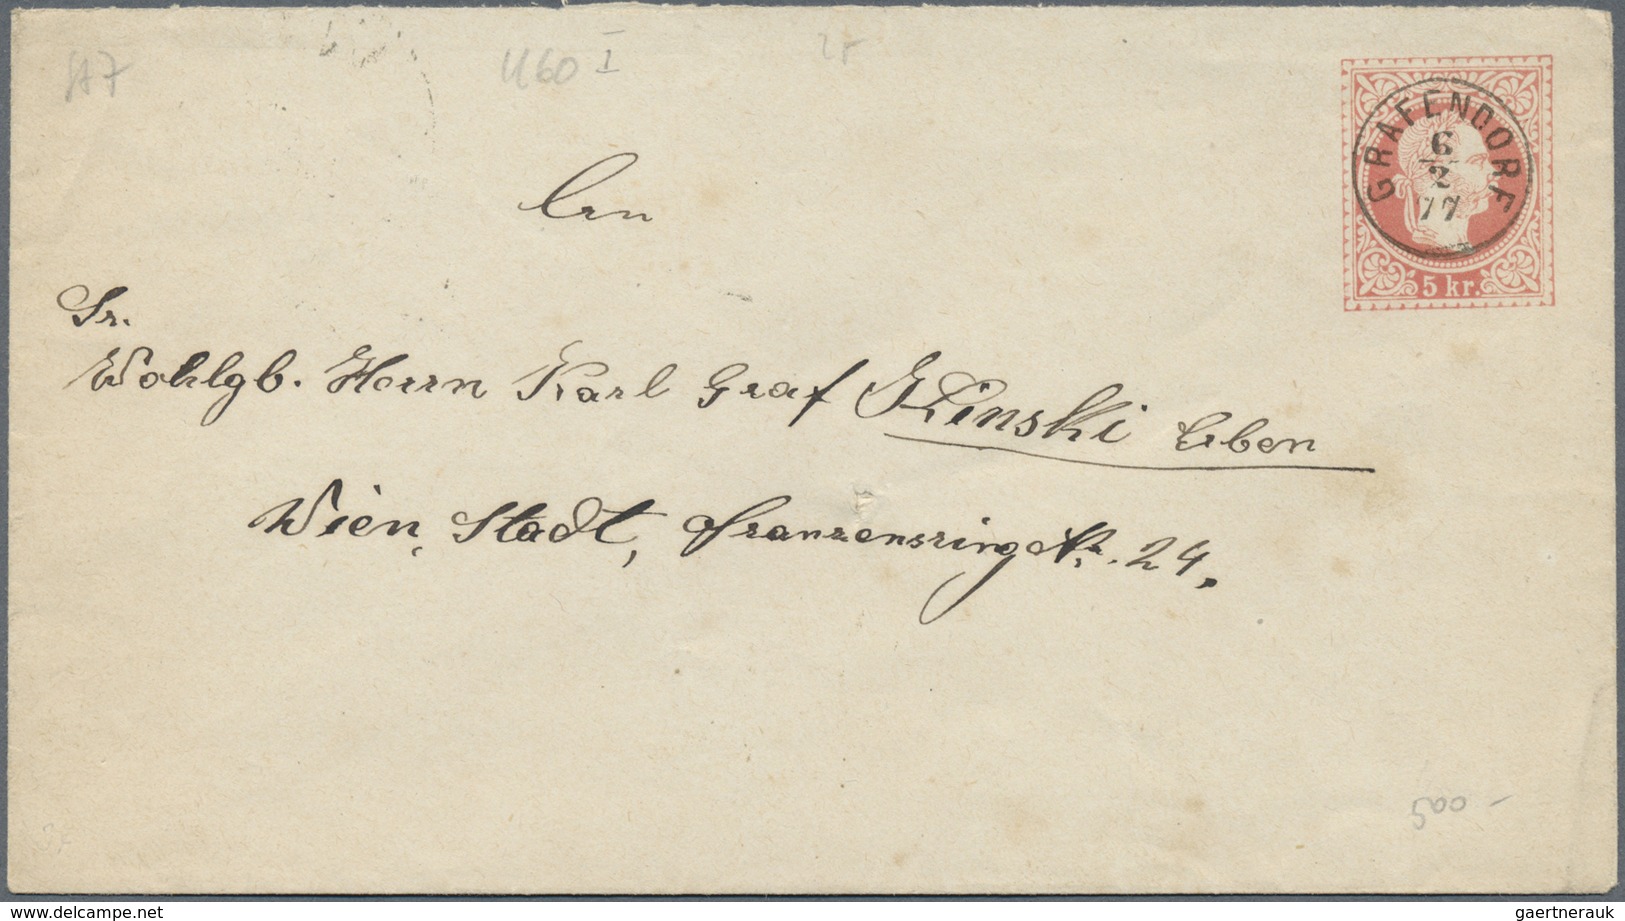 SA7
U60 I
2f
GRAFENDORF
6
2
77
5 kr.
An
Sr.
Wohlgb. Herrn Karl Graf Kinski Erben
Wien, Stadt, Franzensring Nr. 24.
500 –
gaertnerauk www.delcampe.net